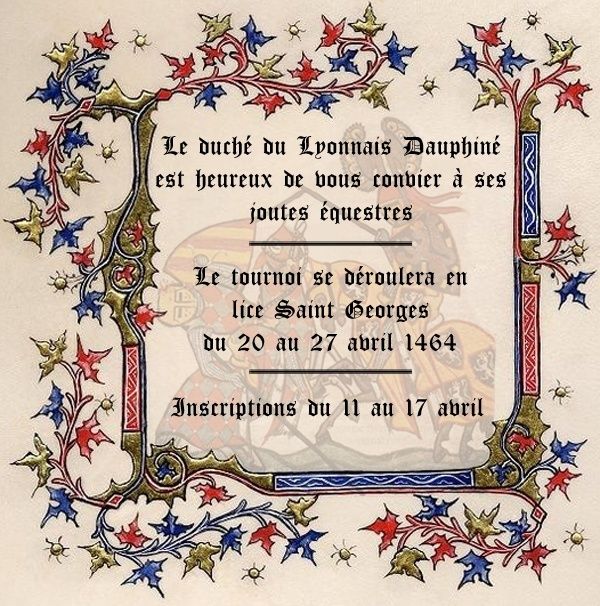 Le duché du Lyonnais Dauphiné
est heureux de vous convier à ses
joutes équestres
Le tournoi se déroulera en
lice Saint Georges
du 20 au 27 avril 1464
Inscriptions du 11 au 17 avril